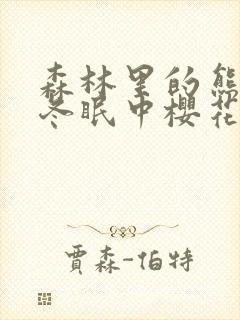 森林里的熊
冬眠中樱花
賈森-伯特